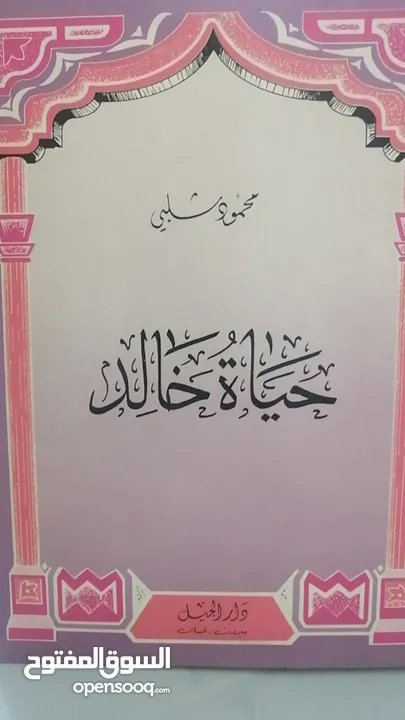 محمود شلبي
حَيَاةُ خَالِد
دَار الجيل
بيروت - لبنان
السوق المفتوح
opensooq.com